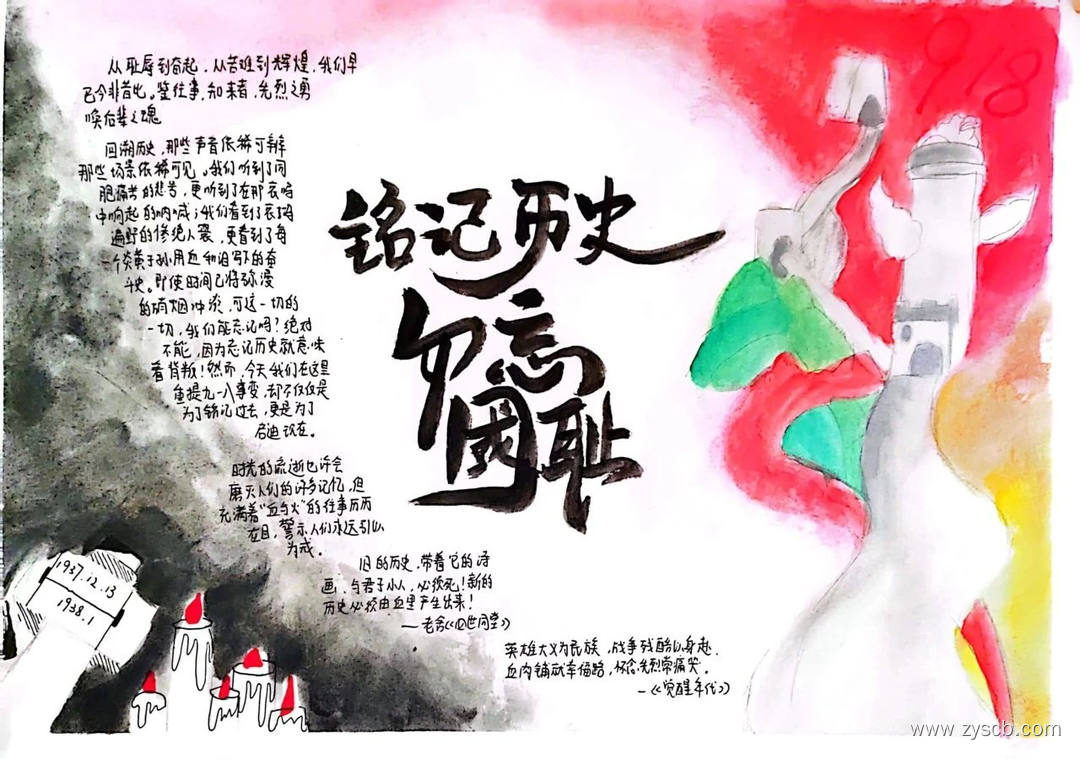 9/18
铭记历史
勿忘
国耻
从耻辱到奋起，从苦难到辉煌，我们早
已今非昔比。鉴往事，知来者，先烈之勇
唤后辈之魂
回溯历史，那些声音依稀可辩
那些场景依稀可见。我们听到了同
胞痛苦的悲苦，更听到了在那哀嚎
中响起的呐喊；我们看到了哀鸿
遍野的惨绝人寰，更看到了每
一个炎黄子孙用血和泪写下的奋
斗史。即使时间已将弥漫
的硝烟冲淡，可这一切的
一切，我们能忘记吗？绝对
不能，因为忘记历史就意味
着背叛！然而，今天我们在这里
重提九一八事变，却不仅仅是
为了铭记过去，更是为了
启迪现在。
时光的流逝也许会
磨灭人们的许多记忆，但
充满着“血与火”的往事历历
在目，警示人们永远引以
为戒。
旧的历史，带着它的诗
画，与君子小人，必须死！新的
历史必须由血里产生出来！
—老舍《四世同堂》
英雄大义为民族，战争残酷以身赴
血肉铺就幸福路，怀念先烈常痛哭。
—《觉醒年代》
1937.12.13
1938.1
www.zyscb.com